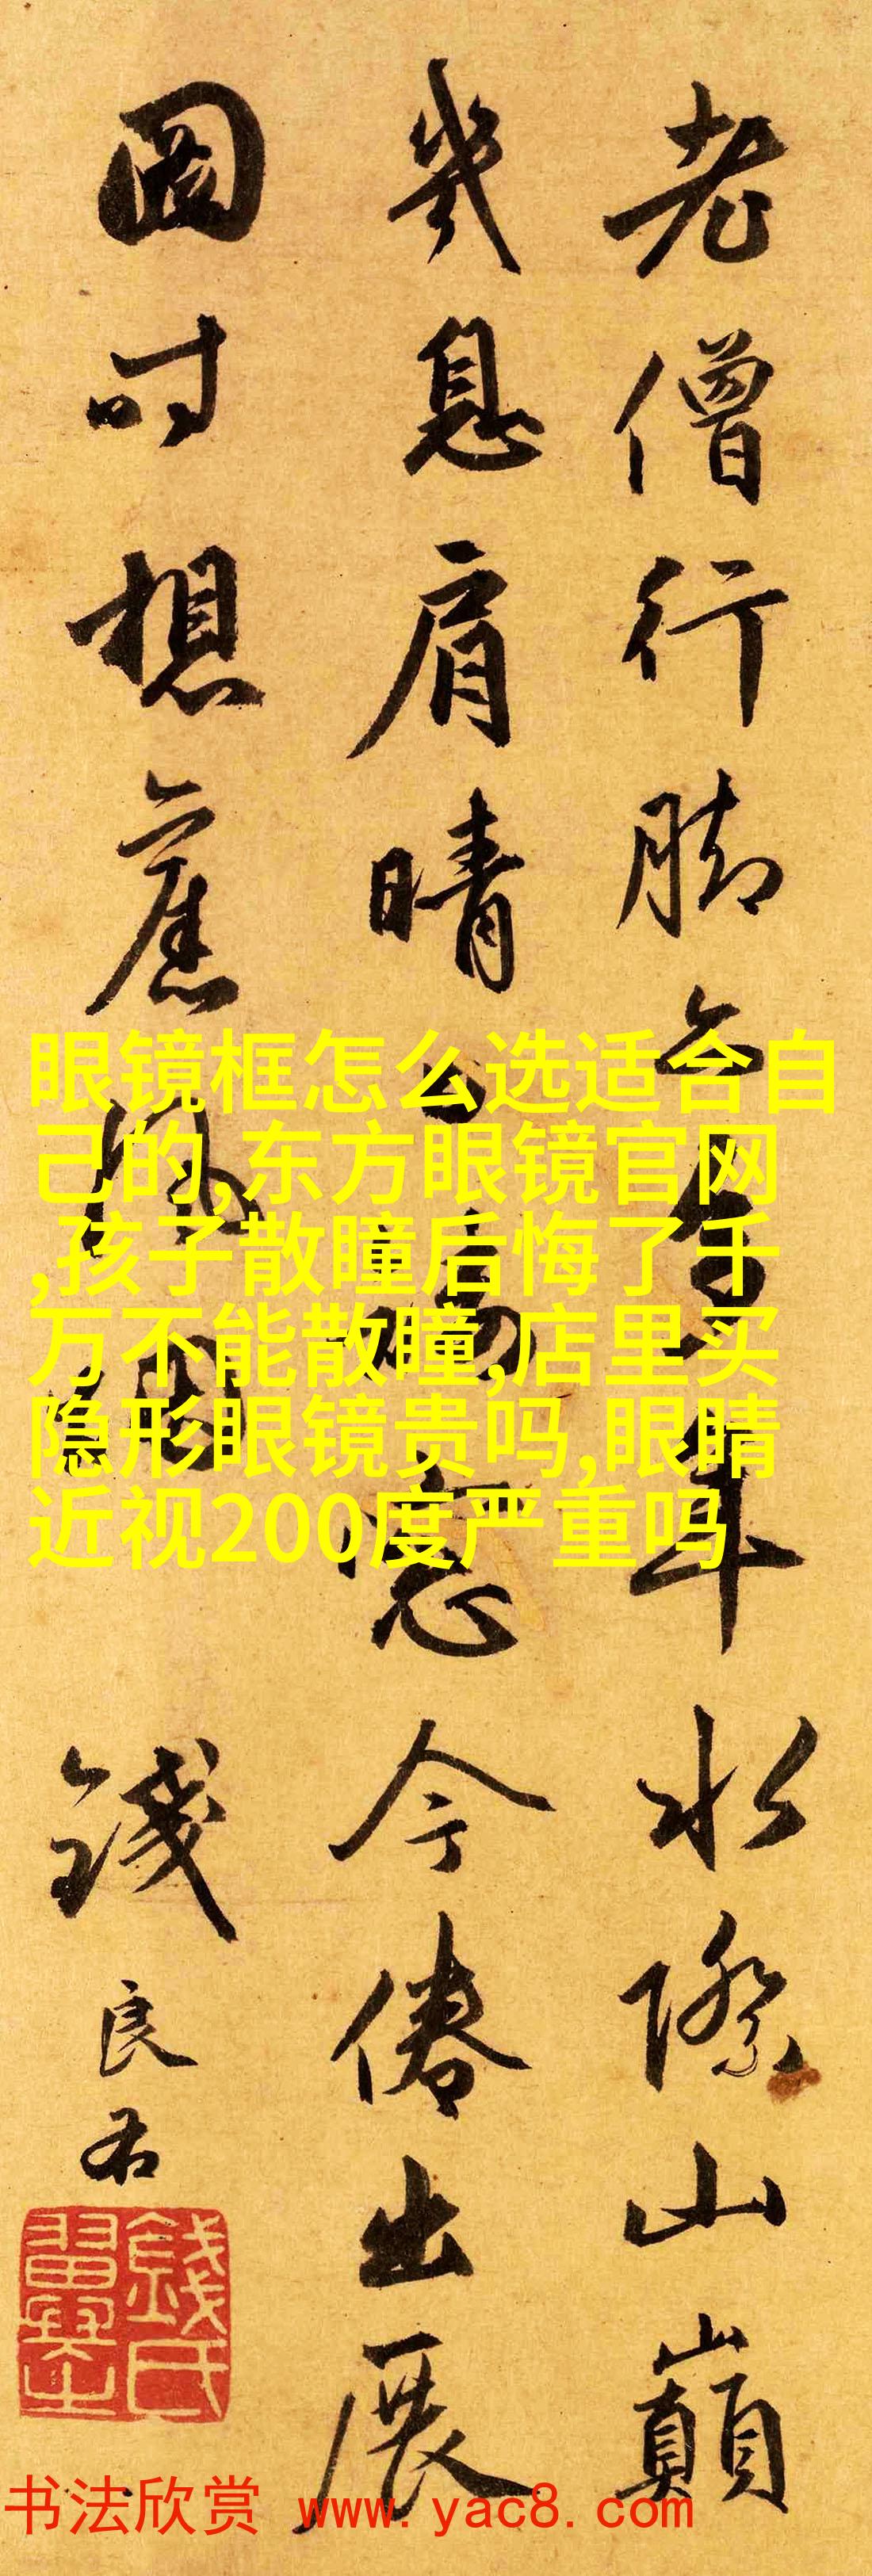 老僧行脚
年水際山巔
幾息肩晴
憶今倦出展
圖時想舊
錢
良右
眼镜框怎么选适合自
己的,东方眼镜官网
,孩子散瞳后悔了千
万不能散瞳,店里买
隐形眼镜贵吗,眼睛
近视200度严重吗
書法欣赏 www.yac8.com